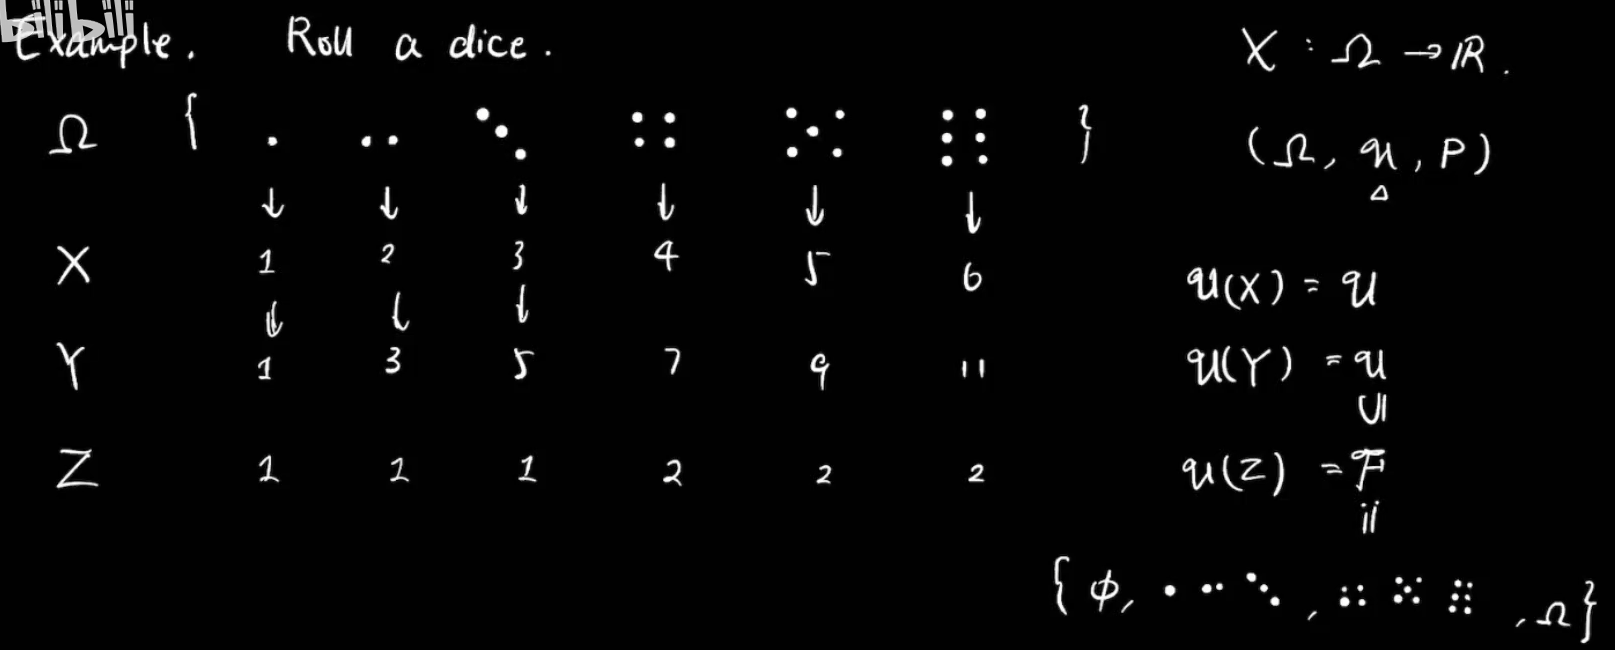 bilibili
Example. Roll a dice.
X : Ω → ℝ.
Ω { ⚀ ⚁ ⚂ ⚃ ⚄ ⚅ }
(Ω, 𝒰, P)
△
↓ ↓ ↓ ↓ ↓ ↓
X 1 2 3 4 5 6
𝒰(X) = 𝒰
↓ ↓ ↓
Y 1 3 5 7 9 11
𝒰(Y) = 𝒰
⊆
Z 1 1 1 2 2 2
𝒰(Z) = ℱ
=
{ ϕ, ⚀ ⚁ ⚂, ⚃ ⚄ ⚅, Ω }